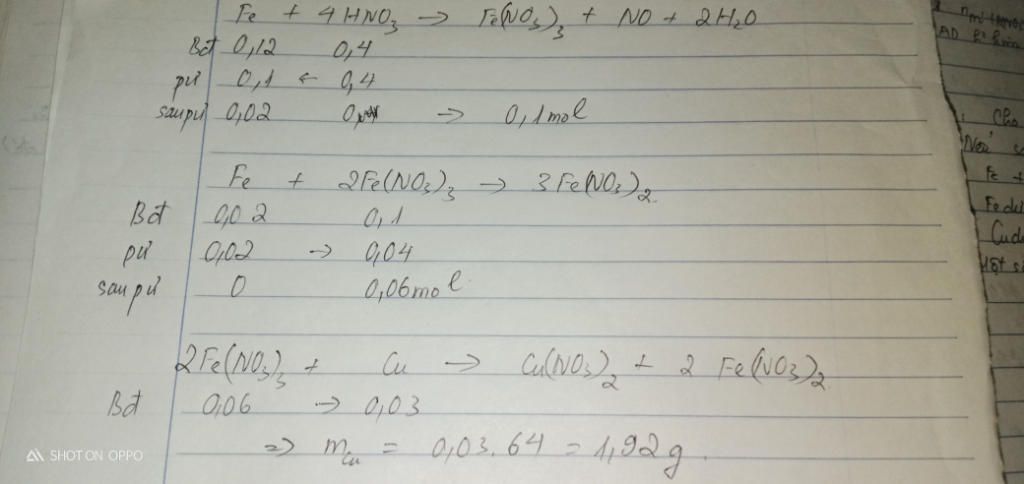 Fe + 4HNO₃ → Fe(NO₃)₃ + NO + 2H₂O
Bđ 0,12 0,4
pứ 0,1 ← 0,4
sau pứ 0,02 → 0,1mol
Fe + 2Fe(NO₃)₃ → 3Fe(NO₃)₂.
Bđ 0,02 0,1
pứ 0,02 → 0,04
sau pứ 0 0,06mol
2Fe(NO₃)₃ + Cu → Cu(NO₃)₂ + 2 Fe(NO₃)₂
Bđ 0,06 → 0,03
=> m Cu = 0,03.64 = 1,92g.
SHOT ON OPPO
Cho
Fe +